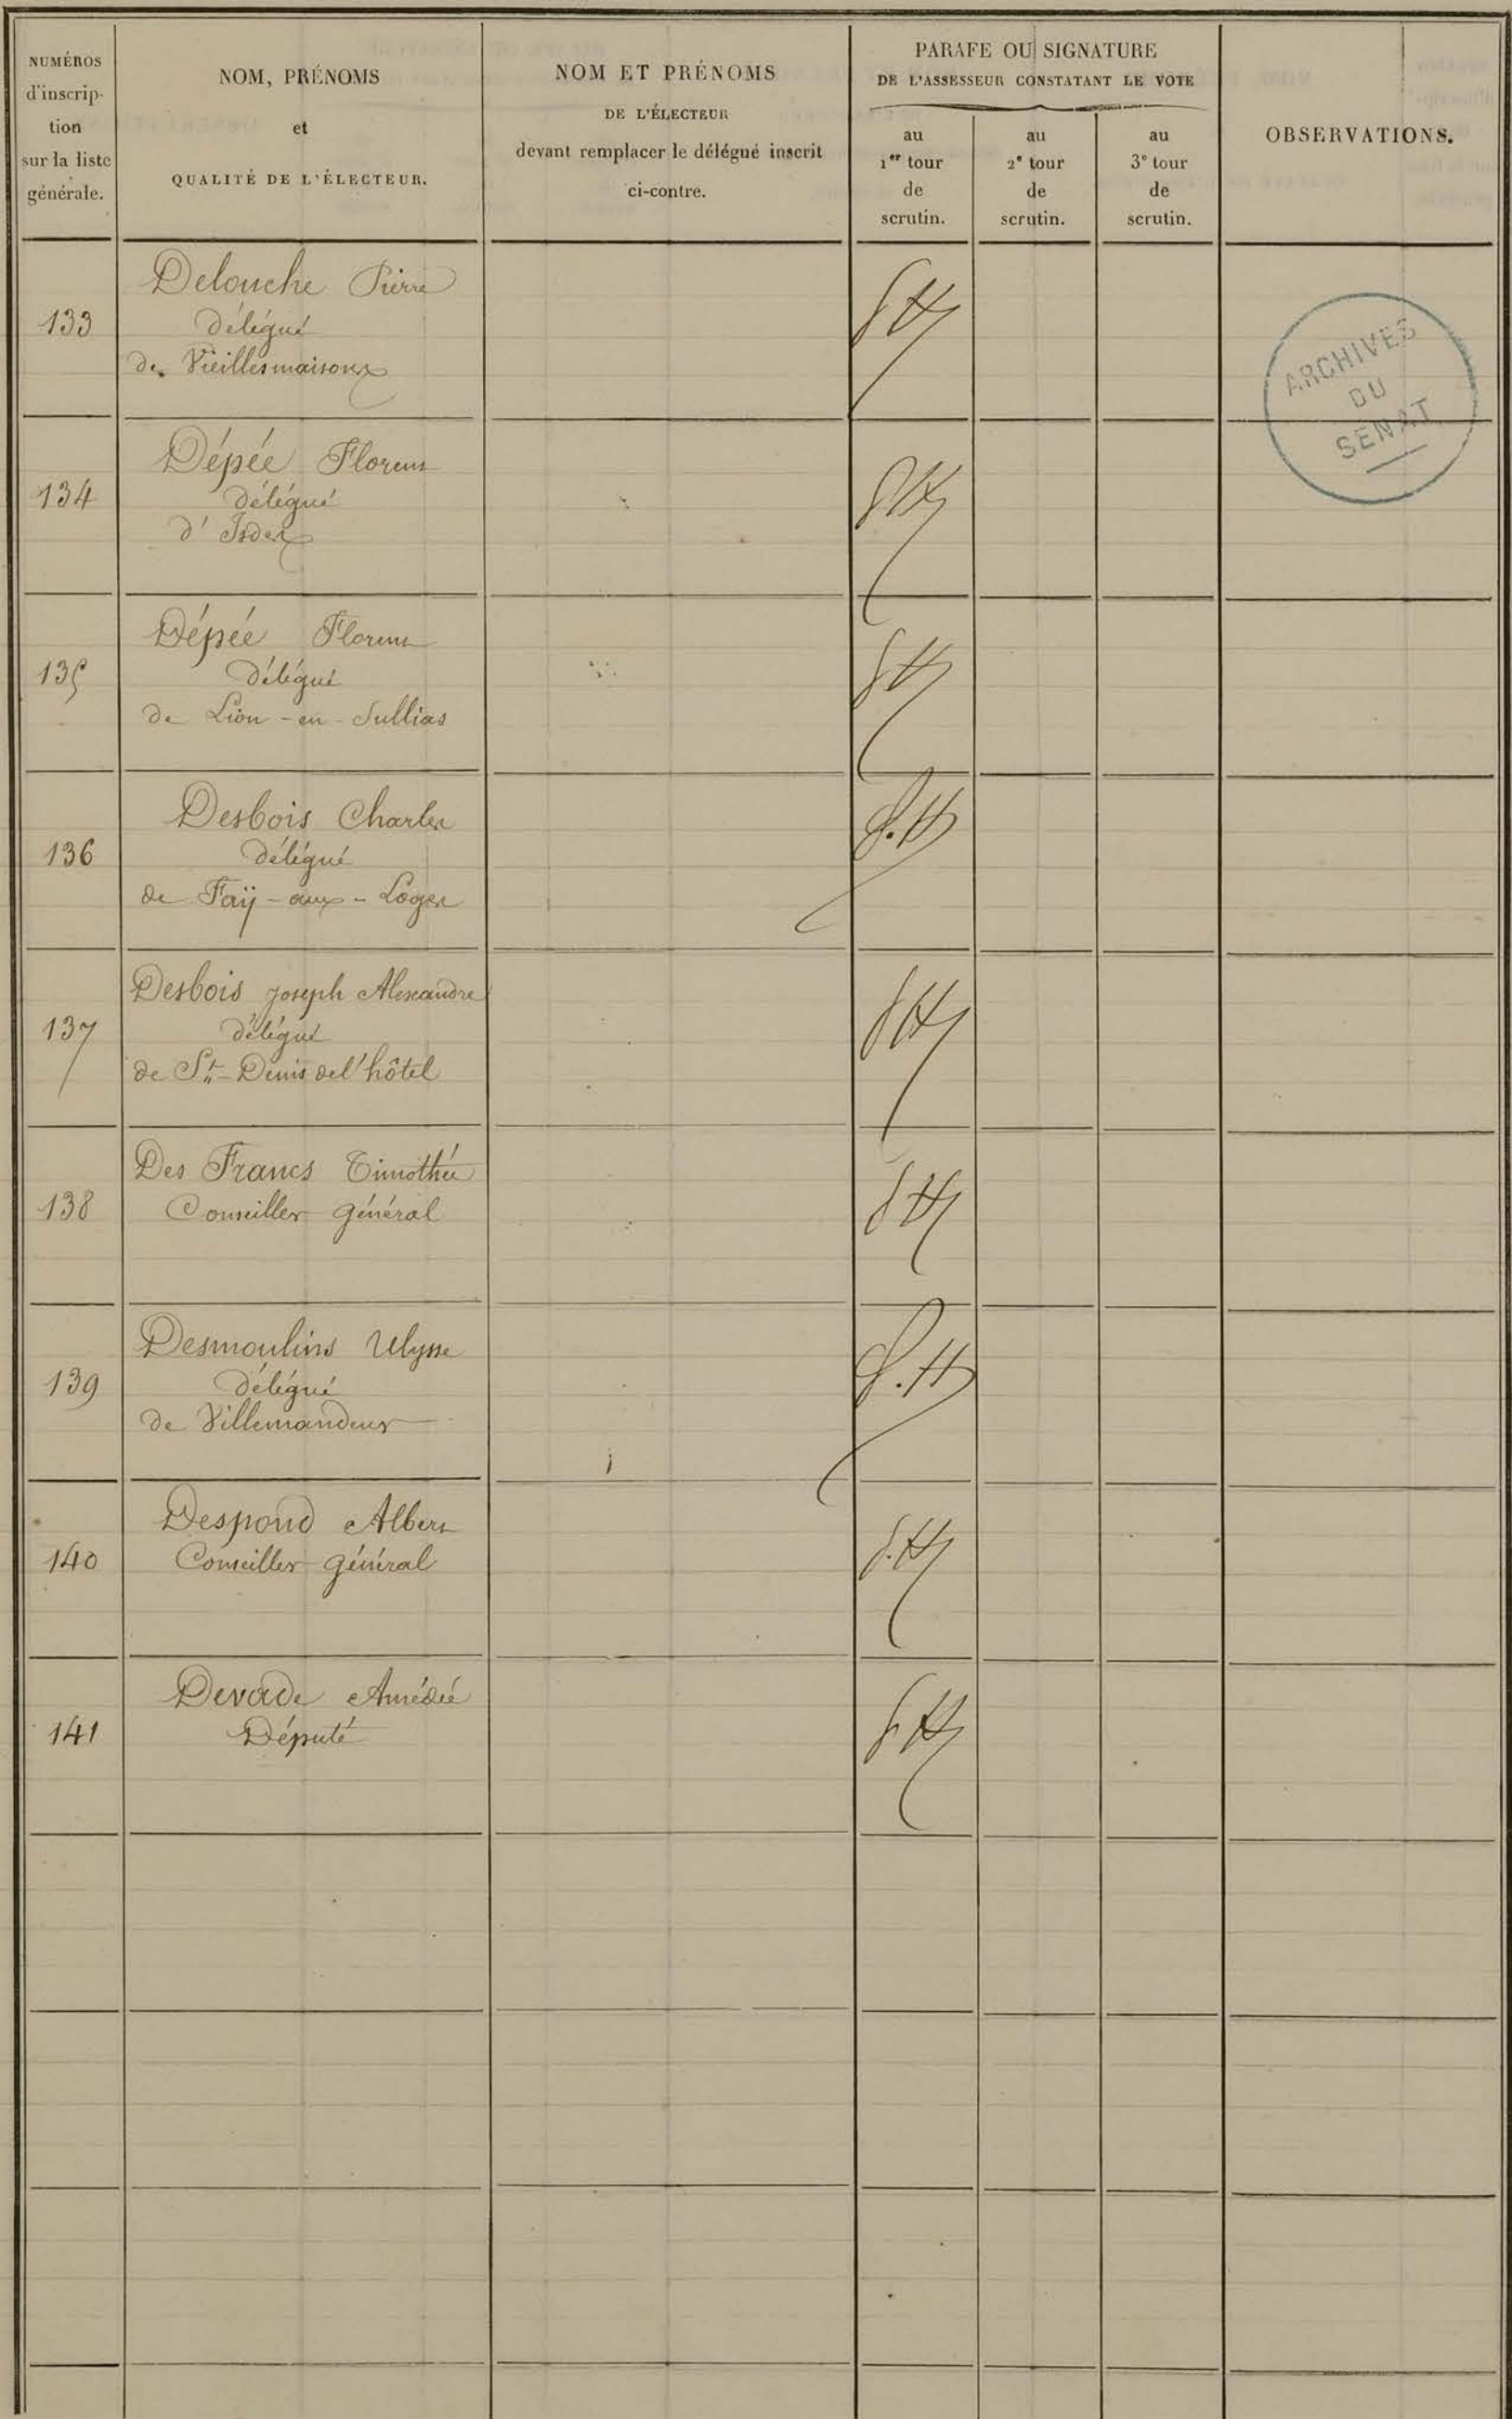 NUMÉROS
d'inscrip-
tion
sur la liste
générale.
NOM, PRÉNOMS
et
QUALITÉ DE L'ÉLECTEUR.
NOM ET PRÉNOMS
DE L'ÉLECTEUR
devant remplacer le délégué inscrit
ci-contre.
PARAFE OU SIGNATURE
DE L'ASSESSEUR CONSTATANT LE VOTE
au
1er tour
de
scrutin.
au
2e tour
de
scrutin.
au
3e tour
de
scrutin.
OBSERVATIONS.
ARCHIVES
DU
SENAT
133
Delouche Pierre
délégué
de Vieillesmaisons
134
Dépée Florent
délégué
d'Isdes
135
Dépée Florent
délégué
de Lion-en-Sullias
136
Desbois Charles
délégué
de Faÿ-aux-Loges
137
Desbois Joseph Alexandre
délégué
de St-Denis de l'hôtel
138
Des Francs Timothée
Conseiller général
139
Desmoulins Ulysse
délégué
de Villemandeur
140
Despond Albert
Conseiller général
141
Devade Amédée
Député